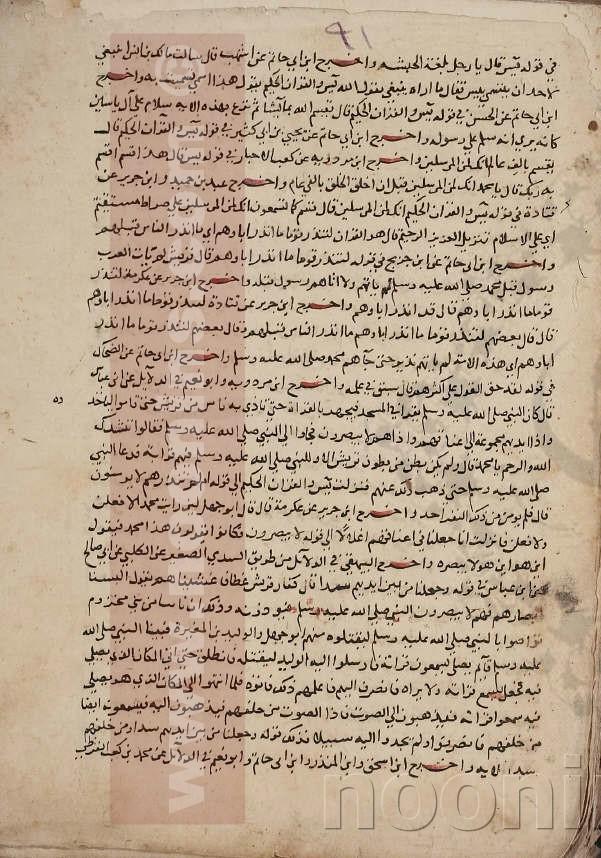 ٩١
في قوله يس قال يا رجل بلغة الحبشه واخرج ابن ابي حاتم عن اشهب قال سالت مالك بن انس اينبغي
لاحد ان يتسمي بيس فقال ما اراه ينبغي يقول الله يس والقران الحكيم يقول هذا اسمي تسميت به واخرج
ابن ابي حاتم عن الحسن في قوله يس والقران الحكيم قال يقسم الله بما يشا ثم نزع بهذه الايه سلام علي آل ياسين
كانه يري انه سلم علي رسوله واخرج ابن ابي حاتم عن يحيي بن ابي كثير في قوله يس والقران الحكيم قال
يقسم بالف عالم انك لمن المرسلين واخرج ابن مردويه عن كعب الاحبار في قوله يس قال هذا قسم اقسم
به ربك قال يا محمد انك لمن المرسلين قبل ان اخلق الخلق بالفي عام واخرج عبد بن حميد وابن جرير عن
قتادة في قوله يس والقران الحكيم انك لمن المرسلين قال قسم كما تسمعون انك لمن المرسلين علي صراط مستقيم
اي علي الاسلام تنزيل العزيز الرحيم قال هو القران لتنذر قوما ما انذر اباوهم اي ما انذر الناس قبلهم
واخرج ابن ابي حاتم عن ابن جريج في قوله لتنذر قوما ما انذر اباوهم قال قريش لم يات العرب
رسول قبل محمد صلي الله عليه وسلم لم ياتهم ولا اباهم رسول قبله واخرج ابن جرير عن عكرمة لتنذر
قوما ما اباوهم قال قد انذر اباوهم واخرج ابن جرير عن قتادة لتنذر قوما ما انذر اباوهم
قال قال بعضهم لتنذر قوما ما انذر اباوهم ما انذر الناس قبلهم وقال بعضهم لتنذر قوما ما انذر
اباوهم اي هذه الامه لم ياتهم نذير حتي جآهم محمد صلي الله عليه وسلم واخرج ابن ابي حاتم عن الضحاك
في قوله لقد حق القول علي اكثرهم قال سبق في علمه واخرج ابن مردويه وابو نعيم في الدلايل عن ابن عباس
قال كان النبي صلي الله عليه وسلم يقرا في المسجد فيجهر بالقراة حتي تاذي به ناس من قريش حتي قاموا لياخذوه
واذا ايديهم مجموعة الي عنا قهم واذا هم لا يبصرون فجاوا الي النبي صلي الله عليه وسلم فقالوا ننشدك
الله والرحم يا محمد قال ولم يكن بطن من بطون قريش الا وللنبي صلي الله عليه وسلم فيهم قرابة فدعا النبي
صلي الله عليه وسلم حتي ذهب ذلك عنهم فنزلت يس والقران الحكيم الي قوله ام لم تنذرهم لا يومنون
قال فلم يومن من ذلك النفر احد واخرج ابن جرير عن عكرمة قال قال ابو جهل لين رايت محمدا لافعلن
ولا فعلن فانزلت انا جعلنا في اعناقهم اغلالا الي قوله لا يبصرون فكانوا يقولون هذا محمد فيقول
اين هو اين هو لا يبصره واخرج البيهقي في الدلايل من طريق السدي الصغير عن الكلبي عن ابي صالح
عن ابن عباس في قوله وجعلنا من بين ايديهم سدا قال كفار قريش غطاء فاغشيناهم يقول البسنا
ابصارهم فهم لا يبصرون النبي صلي الله عليه وسلم فيوذونه وذلك ان ناسا من بني مخزوم
تواصوا بالنبي صلي الله عليه وسلم ليقتلوه منهم ابو جهل والوليد بن المغيرة فبينا النبي صلي الله
عليه وسلم قايم يصلي يسمعون قراته فارسلوا اليه الوليد ليقتله فانطلق حتي اتي المكان الذي يصلي
فيه فجعل يسمع قراته ولا يراه فانصرف اليهم فاعلمهم ذلك فاتوه فلما انتهوا الي المكان الذي هو يصلي
فيه سمعوا قراته فيذهبون الي الصوت فاذا الصوت من خلفهم فيذهبون اليه فيسمعون ايضا
من خلفهم فانصرفوا ولم يجدوا اليه سبيلا فذلك قوله وجعلنا من بين ايديهم سدا ومن خلفهم
سدا الايه واخرج ابن اسحق وابن المنذر وابن ابي حاتم وابو نعيم في الدلايل عن محمد بن كعب القرظي